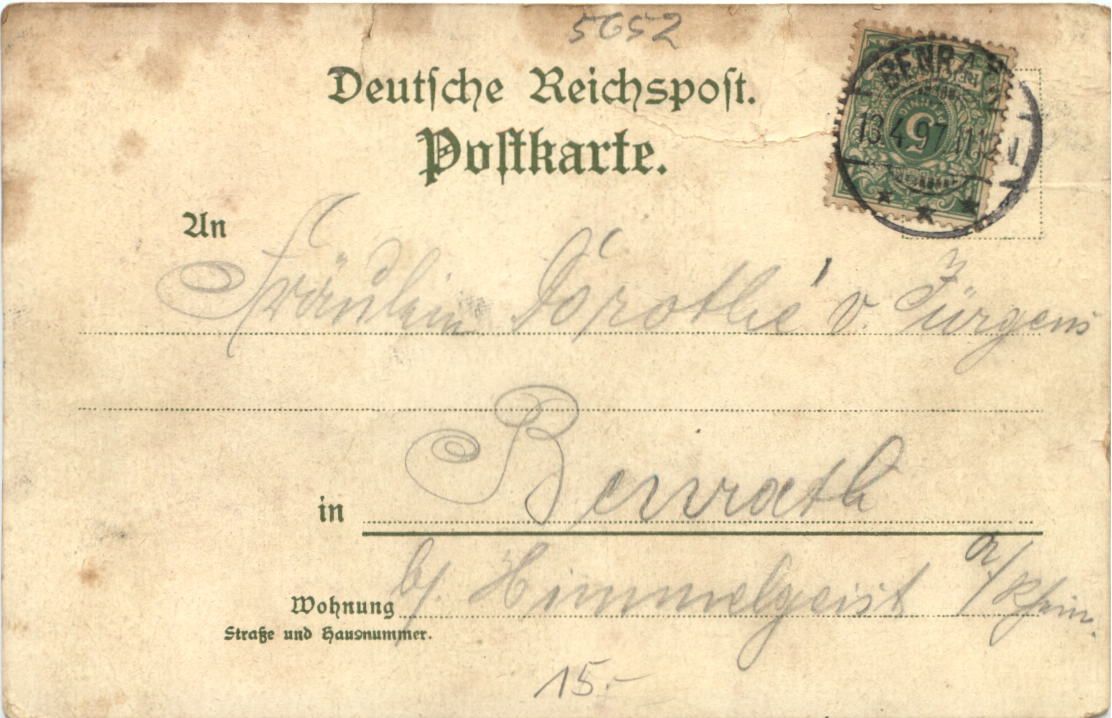 5652
Deutsche Reichspost.
Postkarte.
BENRATH
13.4.97 11-12V.
5
PFENNIG
An
Fräulein Dorothé v. Jürgens
in Benrath
b/ Himmelgeist a/Rhein.
Wohnung
Straße und Hausnummer.
15.-